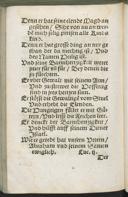 Denn er hat seine elende Magd an
gesehen / Sihe von nu an wer⸗
den mich selig preisen alle Kinds
kind.
Denn er hat grosse ding an mir ge
than der da mechtig ist / Vnd
des Namen Heilig ist.
Vnd seine Barmhertzigkeit weret
jmer fur vnd fur / Bey denen die
jn fürchten.
Er vbet Gewalt mit seinem Arm /
Vnd zerstrewet die Hoffertig
sind in jres hertzen sinn.
Er stösset die Gewaltigen vom Stuel
Vnd erhebt die Elenden.
Die Hungerigen füllet er mit Gü⸗
tern / Vnd lesst die Reichen leer.
Er dencket der Barmhertzigkeit /
Vnd hilfft auff seinem Diener
Israel.
Wie er geredt hat vnsern Vetern /
Abraham vnd seinem Samen
ewiglich. Luc. ij.
Der